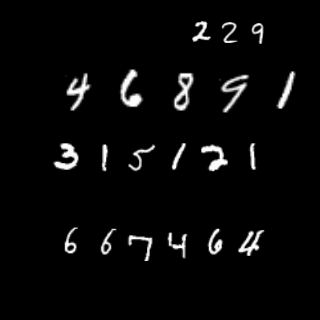 229
46891
315121
667464